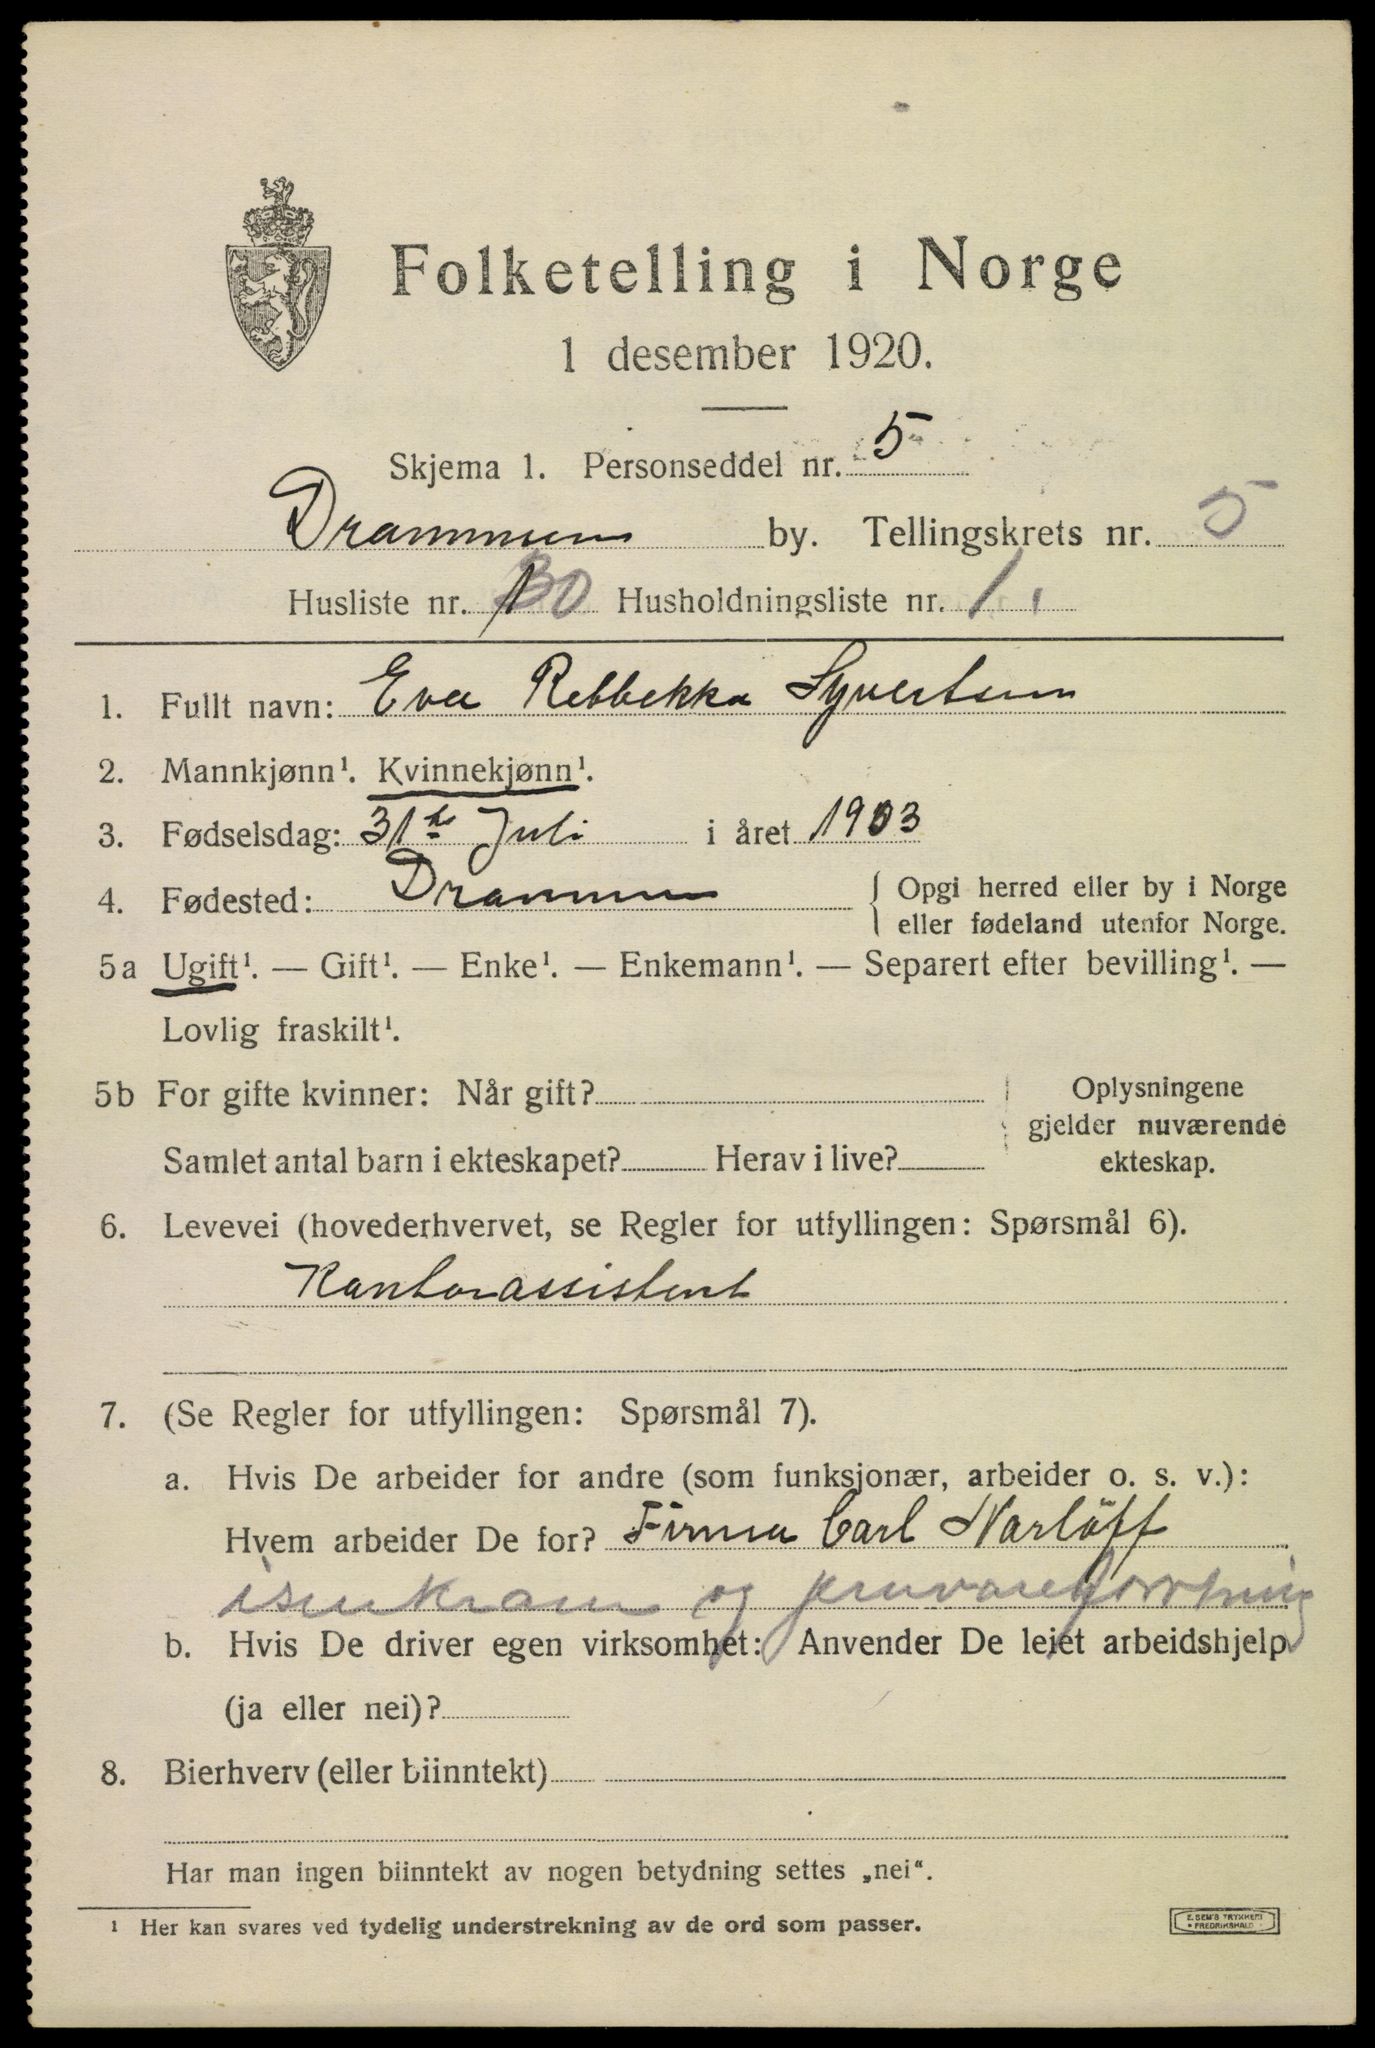 Folketelling i Norge
1 desember 1920.
Skjema 1. Personseddel nr. 5
Drammen by. Tellingskrets nr. 5
Husliste nr. 30 Husholdningsliste nr. 1.
1. Fullt navn: Eva Rebbekka Syvertsen
2. Mannkjønn¹. Kvinnekjønn¹.
3. Fødselsdag: 31te Juli i året 1903
4. Fødested: Drammen { Opgi herred eller by i Norge
eller fødeland utenfor Norge.
5a Ugift¹. — Gift¹. — Enke¹. — Enkemann¹. — Separert efter bevilling¹. —
Lovlig fraskilt¹.
5b For gifte kvinner: Når gift? Oplysningene
gjelder nuværende
Samlet antal barn i ekteskapet? Herav i live? ekteskap.
6. Levevei (hovederhvervet, se Regler for utfyllingen: Spørsmål 6).
Kontorassistent
7. (Se Regler for utfyllingen: Spørsmål 7).
a. Hvis De arbeider for andre (som funksjonær, arbeider o. s. v.):
Hvem arbeider De for? Firma Carl
isenkram og
b. Hvis De driver egen virksomhet: Anvender De leiet arbeidshjelp
(ja eller nei)?
8. Bierhverv (eller biinntekt)
Har man ingen biinntekt av nogen betydning settes „nei“.
¹ Her kan svares ved tydelig understrekning av de ord som passer.
E. SEM'S TRYKKERI
• FREDRIKSHALD •